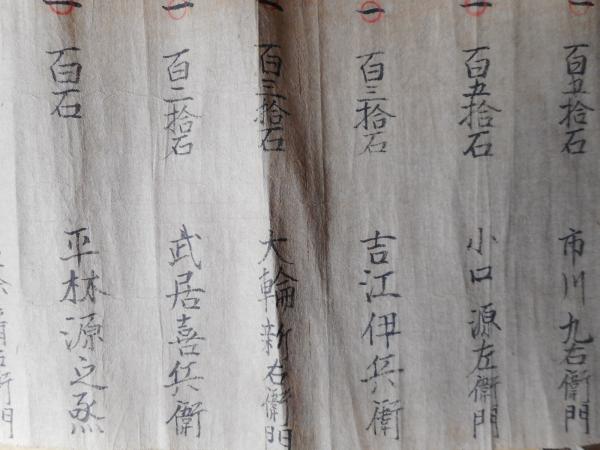 一 百五拾石 市川九右衛門
一 百五拾石 小口源左衛門
一 百三拾石 吉江伊兵衛
一 百三拾石 大輪新右衛門
一 百二拾石 武居喜兵衛
一 百石 平林源之烝
右衛門